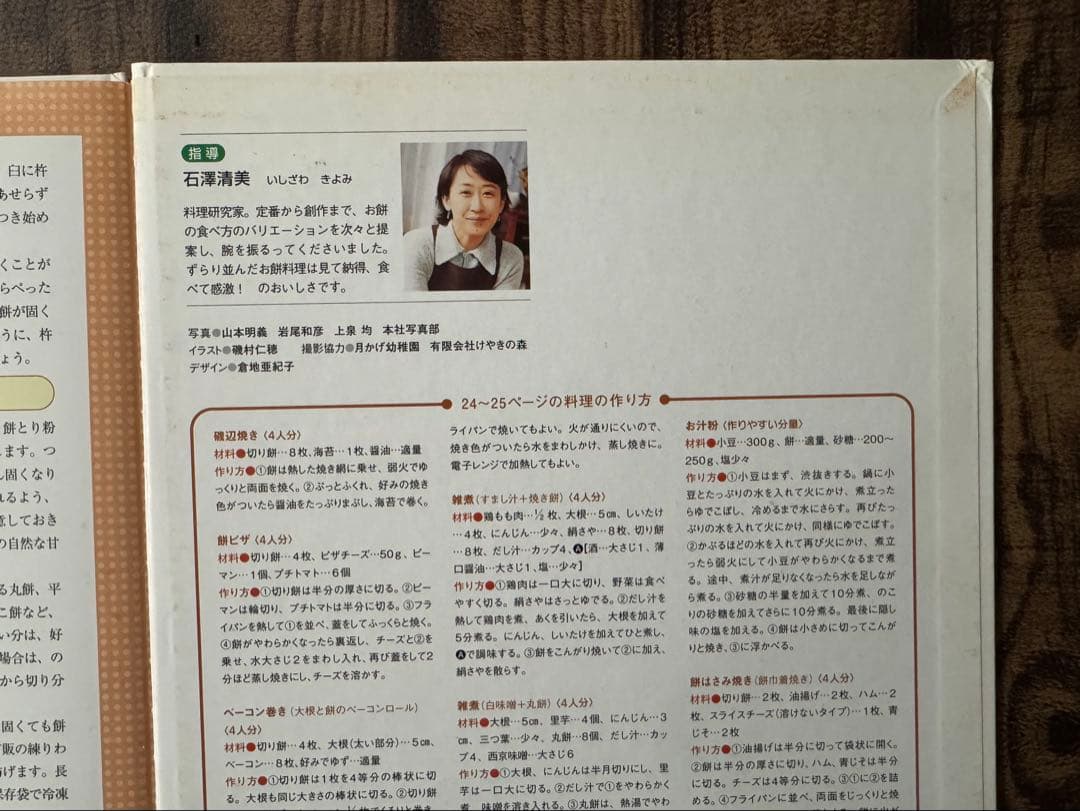 臼に杵
あせらず
つき始め
くことが
らぺった
餅が固く
うに、杵
ょう。
餅とり粉
します。つ
し固くなり
れるよう、
意しておき
の自然な甘
る丸餅、平
こ餅など、
い分は、好
場合は、の
から切り分
固くても餅
販の練りわ
げます。長
保存袋で冷凍
指導
石澤清美 いしざわ きよみ
料理研究家。定番から創作まで、お餅
の食べ方のバリエーションを次々と提
案し、腕を振るってくださいました。
ずらり並んだお餅料理は見て納得、食
べて感激！ のおいしさです。
写真●山本明義 岩尾和彦 上泉 均 本社写真部
イラスト●磯村仁穂 撮影協力●月かげ幼稚園 有限会社けやきの森
デザイン●倉地亜紀子
24〜25ページの料理の作り方
磯辺焼き（4人分）
材料●切り餅…8枚、海苔…1枚、醤油…適量
作り方●①餅は熱した焼き網に乗せ、弱火でゆ
っくりと両面を焼く。②ぷっとふくれ、好みの焼き
色がついたら醤油をたっぷりまぶし、海苔で巻く。
餅ピザ〈4人分〉
材料●切り餅…4枚、ピザチーズ…50g、ピー
マン…1個、プチトマト…6個
作り方●①切り餅は半分の厚さに切る。②ピー
マンは輪切り、プチトマトは半分に切る。③フラ
イパンを熱して①を並べ、蓋をしてふっくらと焼く。
④餅がやわらかくなったら裏返し、チーズと②を
乗せ、水大さじ2をまわし入れ、再び蓋をして2
分ほど蒸し焼きにし、チーズを溶かす。
ベーコン巻き（大根と餅のベーコンロール）
〈4人分〉
材料●切り餅…4枚、大根（太い部分）…5㎝、
ベーコン…8枚、好みでゆず…適量
作り方●①切り餅は1枚を4等分の棒状に切
る。大根も同じ大きさの棒状に切る。②切り餅
ライパンで焼いてもよい。火が通りにくいので、
焼き色がついたら水をまわしかけ、蒸し焼きに。
電子レンジで加熱してもよい。
雑煮（すまし汁＋焼き餅）〈4人分〉
材料●鶏もも肉…½枚、大根…5㎝、しいたけ
…4枚、にんじん…少々、絹さや…8枚、切り餅
…8枚、だし汁…カップ4、Ⓐ［酒…大さじ1、薄
口醤油…大さじ1、塩…少々］
作り方●①鶏肉は一口大に切り、野菜は食べ
やすく切る。絹さやはさっとゆでる。②だし汁を
熱して鶏肉を煮、あくを引いたら、大根を加えて
5分煮る。にんじん、しいたけを加えてひと煮し、
Ⓐで調味する。③餅をこんがり焼いて②に加え、
絹さやを散らす。
雑煮（白味噌＋丸餅）〈4人分〉
材料●大根…5㎝、里芋…4個、にんじん…3
㎝、三つ葉…少々、丸餅…8個、だし汁…カッ
プ4、西京味噌…大さじ6
作り方●①大根、にんじんは半月切りにし、里
芋は一口大に切る。②だし汁で①をやわらかく
煮、味噌を溶き入れる。③丸餅は、熱湯でやわ
お汁粉〈作りやすい分量〉
材料●小豆…300g、餅…適量、砂糖…200〜
250g、塩少々
作り方●①小豆はまず、渋抜きする。鍋に小
豆とたっぷりの水を入れて火にかけ、煮立った
らゆでこぼし、冷めるまで水にさらす。再びたっ
ぷりの水を入れて火にかけ、同様にゆでこぼす。
②かぶるほどの水を入れて再び火にかけ、煮立
ったら弱火にして小豆がやわらかくなるまで煮
る。途中、煮汁が足りなくなったら水を足しなが
ら煮る。③砂糖の半量を加えて10分煮、のこ
りの砂糖を加えてさらに10分煮る。最後に隠し
味の塩を加える。④餅は小さめに切ってこんが
りと焼き、③に浮かべる。
餅はさみ焼き（餅巾着焼き）〈4人分〉
材料●切り餅…2枚、油揚げ…2枚、ハム…2
枚、スライスチーズ（溶けないタイプ）…1枚、青
じそ…2枚
作り方●①油揚げは半分に切って袋状に開く。
②餅は半分の厚さに切り、ハム、青じそは半分
に切る。チーズは4等分に切る。③①に②を詰
める。④フライパンに並べ、両面をじっくりと焼